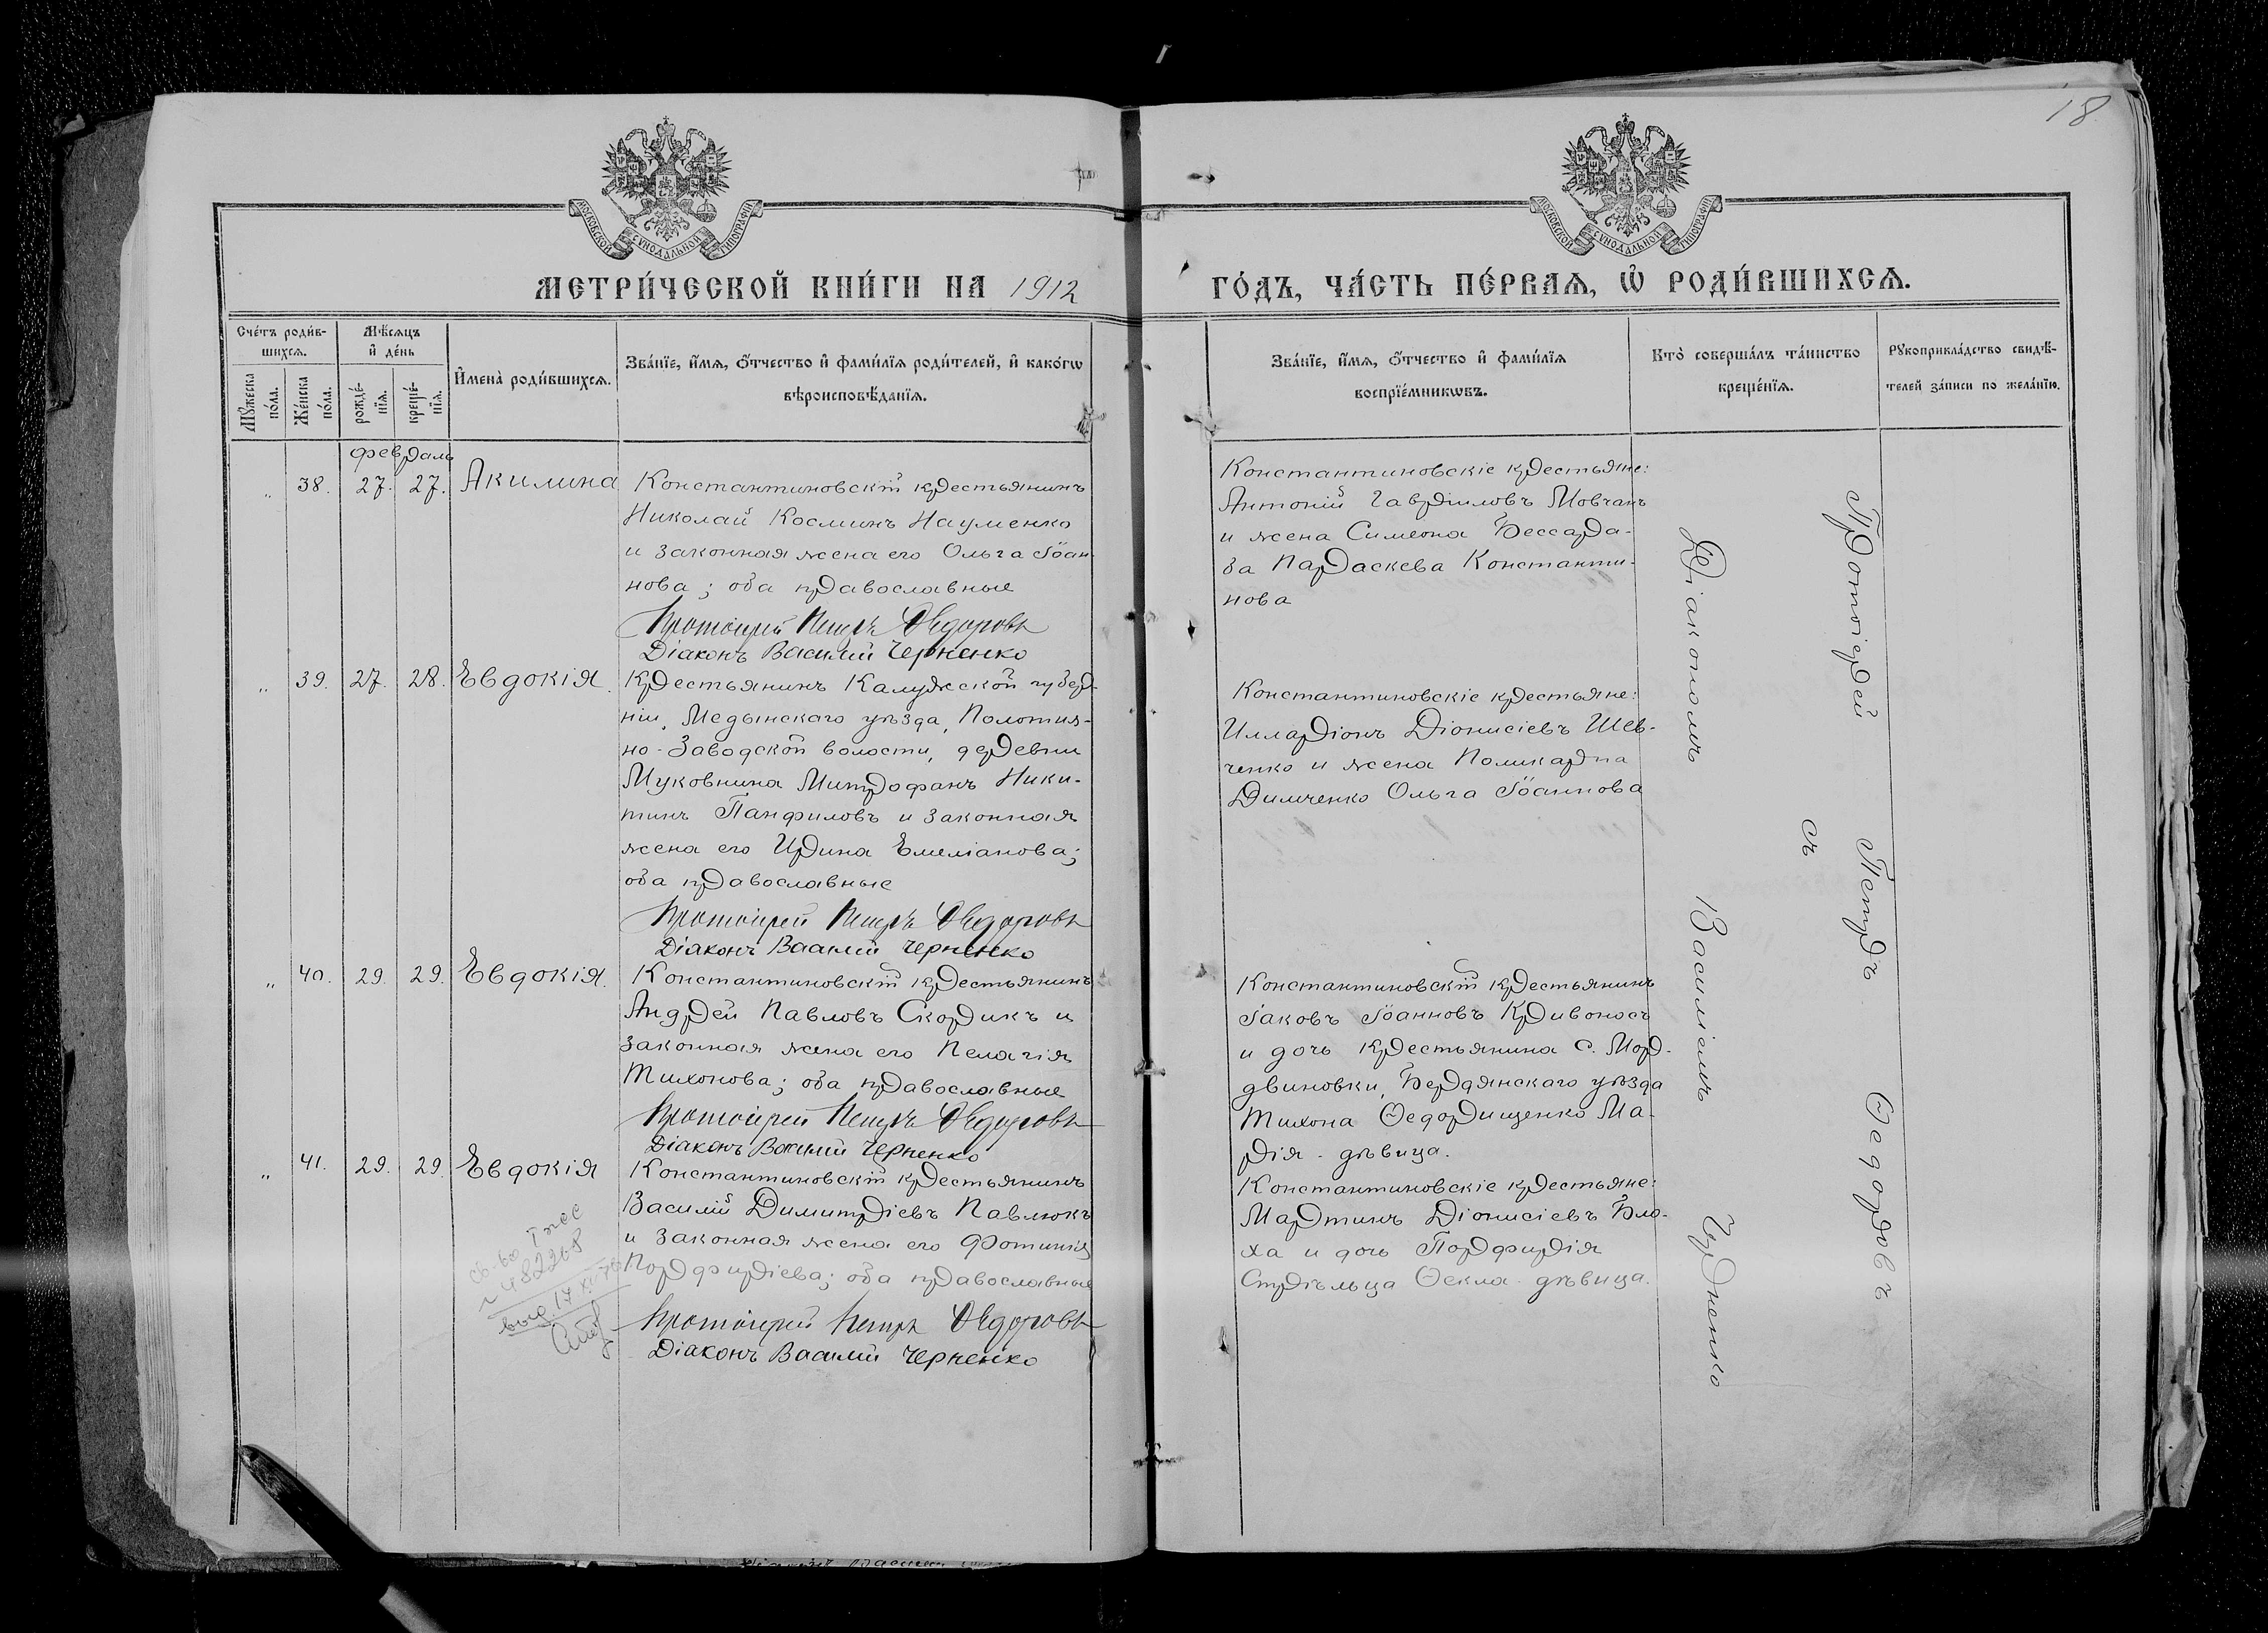 18
МОСКОВСКОЙ СУНОДАЛЬНОЙ ТИПОГРАФІИ
МОСКОВСКОЙ СУНОДАЛЬНОЙ ТИПОГРАФІИ
МЕТРИ́ЧЕСКОЙ КНИ́ГИ НА 1912
ГО́ДЪ, ЧА́СТЬ ПЕ́РВАѦ, Ѡ҆ РОДИ́ВШИХСѦ.
Сче́тъ роди́в-
шихсѧ.
Мꙋ́жеска по́ла.
Же́нска по́ла.
Мѣ́сѧцъ
и҆ де́нь
рожде́-
нїѧ.
креще́-
нїѧ.
И҆мена̀ роди́вшихсѧ.
Зва́нїе, и҆́мѧ, ѻ҆́тчество и҆ фами́лїѧ роди́телей, и҆ како́гѡ
вѣроисповѣ́данїѧ.
Зва́нїе, и҆́мѧ, ѻ҆́тчество и҆ фами́лїѧ
воспрїе́мникѡвъ.
Кто̀ соверша́лъ та́инство
креще́нїѧ.
Рꙋкоприкла́дство свидѣ́-
телей за́писи по жела́нїю.
февраль
„ 38. 27. 27. Акилина
Константиновскій крестьянинъ
Николай Косминъ Науменко
и законная жена его Ольга Іоан-
нова; оба православные
Протоіерей Петръ Ѳедоровъ
Діаконъ Василій Черненко
Константиновскіе крестьяне:
Антоній Гавріиловъ Мовчанъ
и жена Симеона Бессара-
ба Параскева Константи-
нова
„ 39. 27. 28. Евдокія.
Крестьянинъ Калужской губер-
ніи, Медынскаго уѣзда, Полотня-
но-Заводской волости, деревни
Муковнина Митрофанъ Ники-
тинъ Панфиловъ и законная
жена его Ирина Емеліанова;
оба православные
Протоіерей Петръ Ѳедоровъ
Діаконъ Василій Черненко
Константиновскіе крестьяне:
Илларіонъ Діонисіевъ Шев-
ченко и жена Поликарпа
Димченко Ольга Іоаннова
„ 40. 29. 29. Евдокія.
Константиновскій крестьянинъ
Андрей Павловъ Скорикъ и
законная жена его Пелагія
Тихонова; оба православные
Протоіерей Петръ Ѳедоровъ
Діаконъ Василій Черненко
Константиновскій крестьянинъ
Іаковъ Іоанновъ Кривоносъ
и дочь крестьянина с. Мор-
двиновки, Бердянскаго уѣзда
Тихона Ѳедорищенко Ма-
рія - дѣвица.
„ 41. 29. 29. Евдокія
Константиновскій крестьянинъ
Василій Димитріевъ Павлюкъ
и законная жена его Фотинія
Порфиріева; оба православные
Протоіерей Петръ Ѳедоровъ
Діаконъ Василій Черненко
св-во
482268
выд. 17
Константиновскіе крестьяне:
Мартинъ Діонисіевъ Бло-
ха и дочь Порфирія
Стрѣльца Ѳекла - дѣвица.
Протоіерей Петръ Ѳедоровъ
съ
Діакономъ Василіемъ Черненко